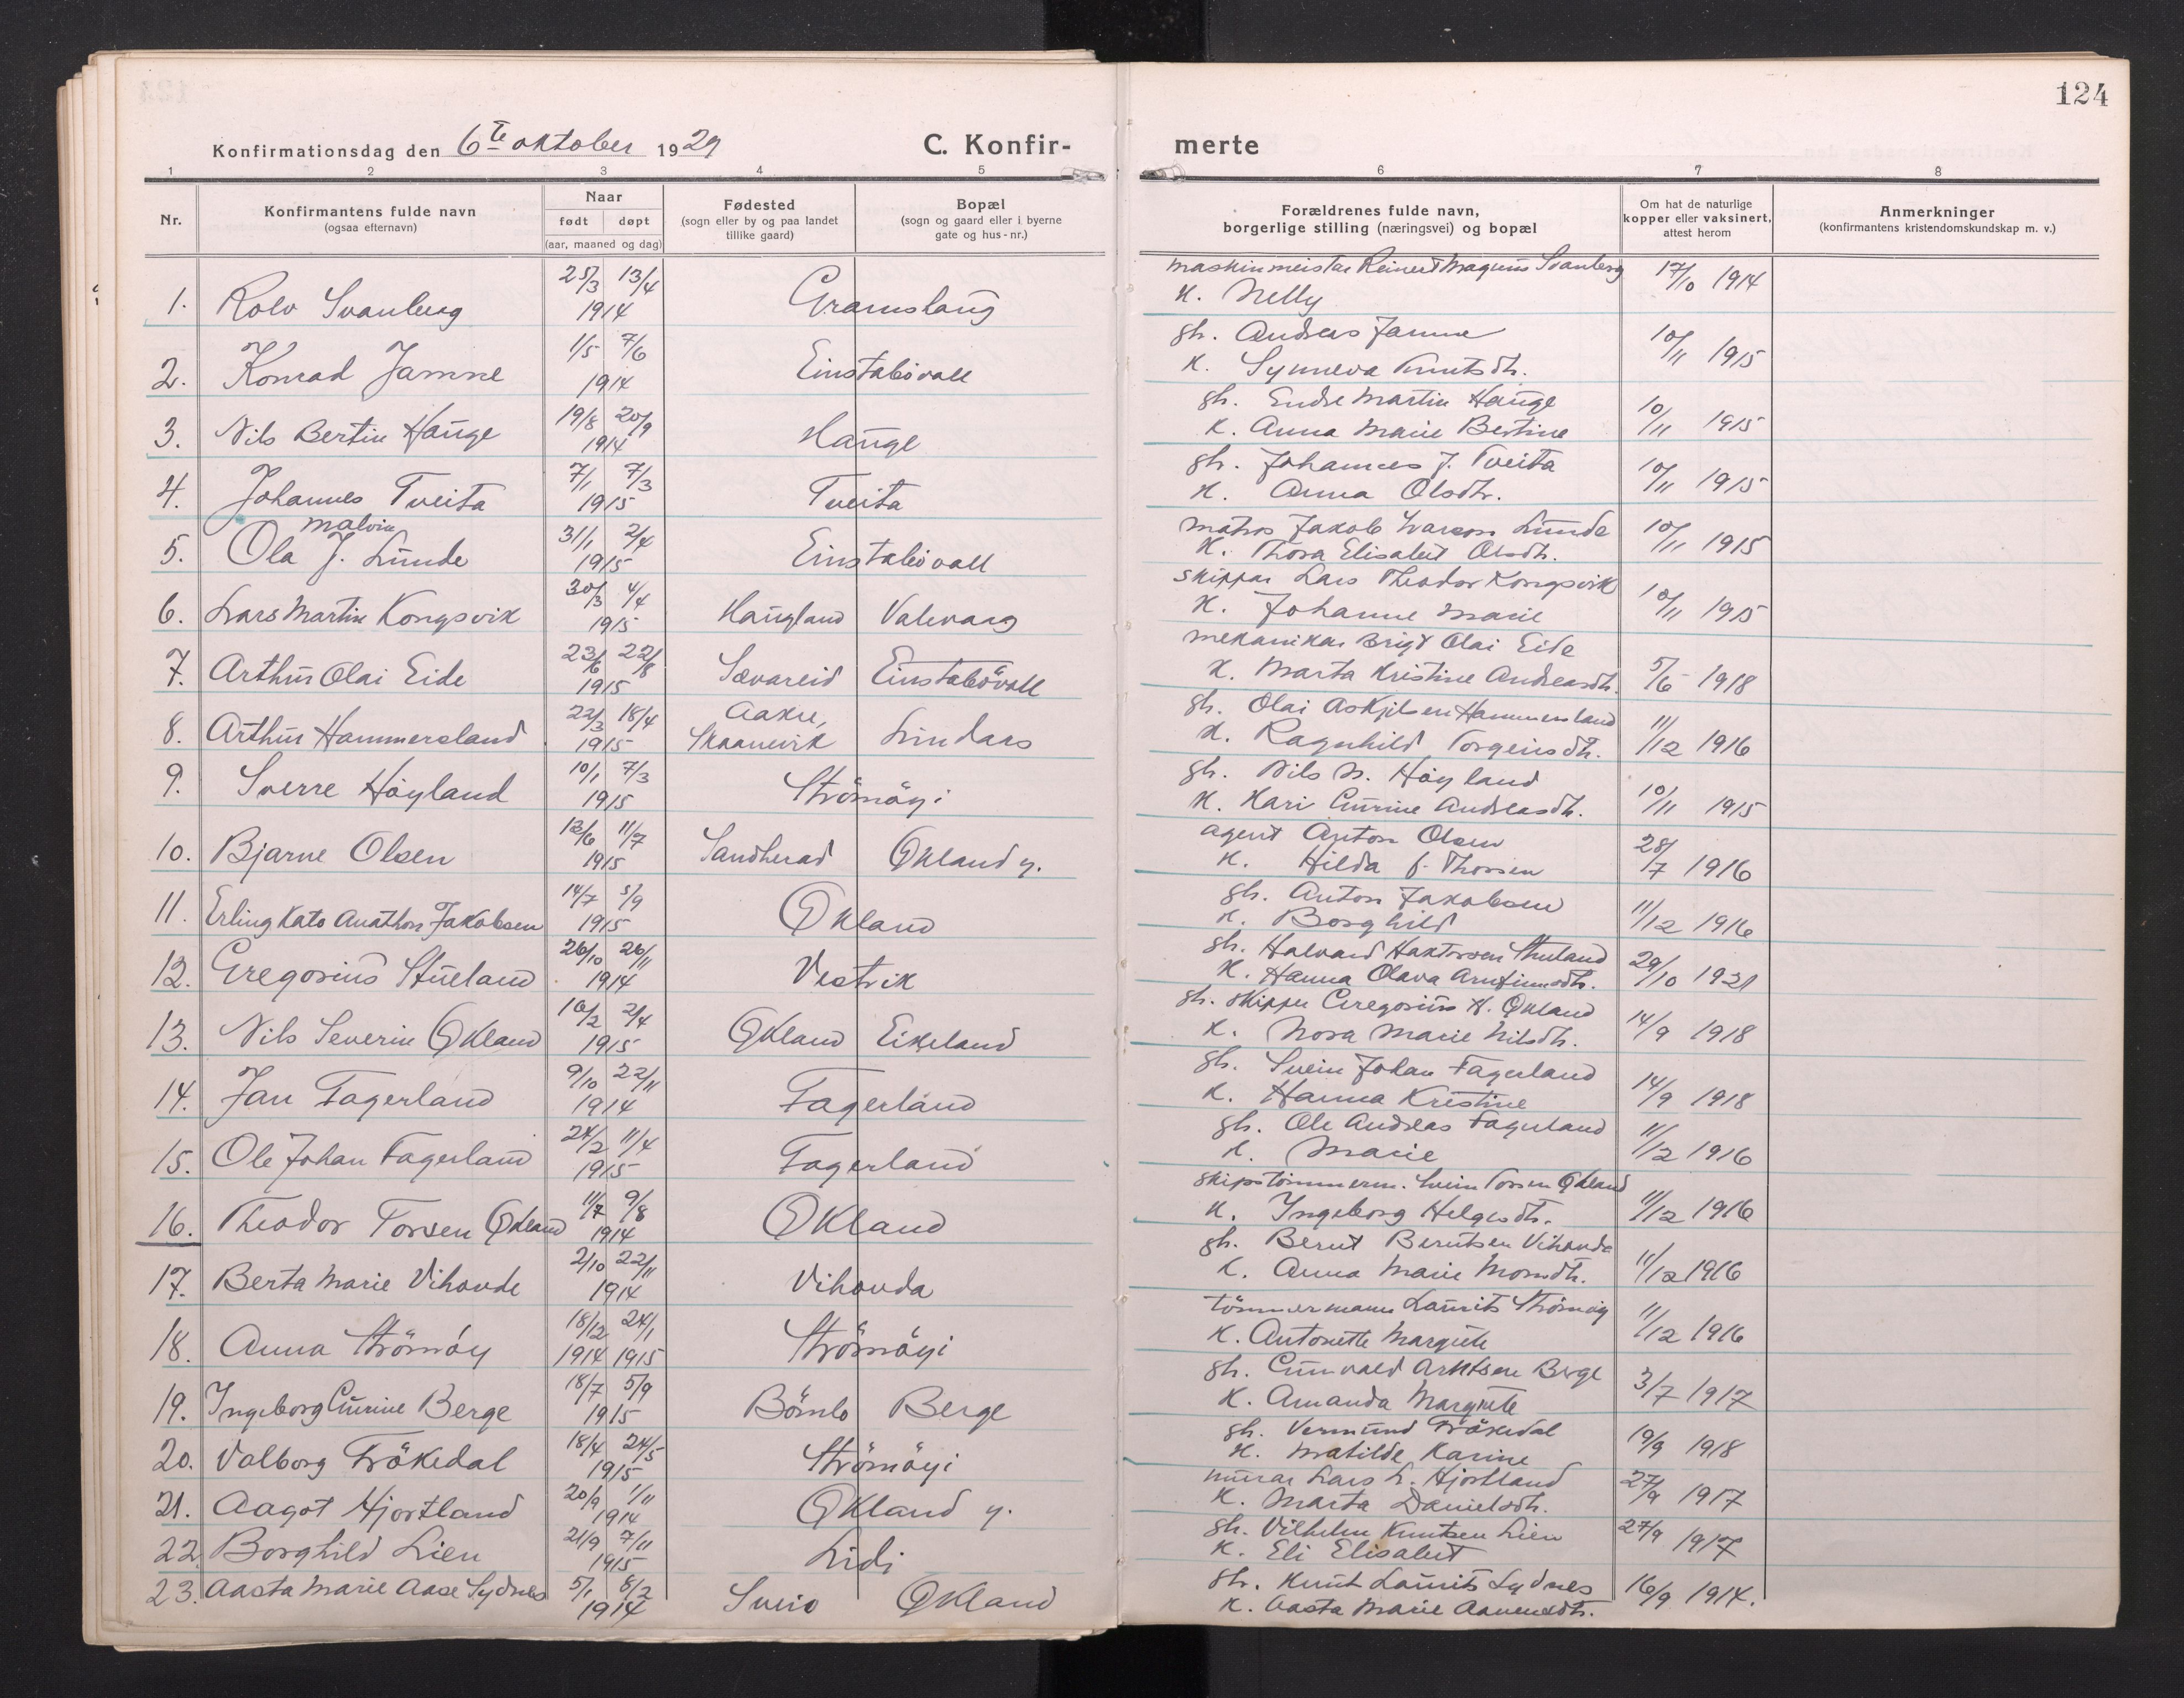 124
Konfirmationsdag den 6te oktober 1929
C. Konfir- merte
1 2 3 4 5 6 7 8
Nr.
Konfirmantens fulde navn
(ogsaa efternavn)
Naar
født døpt
(aar, maaned og dag)
Fødested
(sogn eller by og paa landet
tillike gaard)
Bopæl
(sogn og gaard eller i byerne
gate og hus-nr.)
Forældrenes fulde navn,
borgerlige stilling (næringsvei) og bopæl
Om hat de naturlige
kopper eller vaksinert,
attest herom
Anmerkninger
(konfirmantens kristendomskundskap m. v.)
25/3 13/4 maskinmeistar Reinert Magnus Svanberg 17/10 1914
1. Rolv Svanberg 1914 Gramshaug K. Nelly
1/5 7/6 gh. Andreas Jamne 10/11 1915
2. Konrad Jamne 1914 Einstabövoll K. Synneva Knutsdtr.
19/8 20/9 gh. Endre Martin Hauge 10/11 1915
3. Nils Bertin Hauge 1914 Hauge K. Anna Marie Bertine
7/1 7/3 gh. Johannes J. Tveita 10/11 1915
4. Johannes Tveita 1915 Tveita K. Anna Olsdtr.
Malvin 31/1 2/4 matros Jakob Ivarson Lunde 10/11 1915
5. Ola J. Lunde 1915 Einstabövoll K. Thora Elisabet Olsdtr.
30/3 4/4 skippar Lars Theodor Kongsvik 10/11 1915
6. Lars Martin Kongsvik 1915 Haugland Valevaag K. Johanne Marie
23/6 22/8 mekanikar Brigt Olai Eide
7. Arthur Olai Eide 1915 Sævareid Einstabövoll K. Marta Kristine Andreasdtr. 5/6 1918
22/3 18/4 Aakre, gh. Olai Askjelsen Hammersland 11/12 1916
8. Arthur Hammersland 1915 Skaanevik Lindaas K. Ragnhild Torgeirsdtr.
10/1 7/3 gh. Nils N. Höyland 10/11 1915
9. Sverre Höyland 1915 Strömöyi K. Kari Gurine Andreasdtr.
13/6 11/7 agent Anton Olsen 28/7 1916
10. Bjarne Olsen 1915 Sandherad Økland y. K. Hilda f. Thorsen
14/7 5/9 gh. Anton Jakobsen 11/12 1916
11. Erling Kato Anathon Jakobsen 1915 Økland K. Borghild
26/10 26/11 gh. Halvard Haktorsen Stueland 29/10 1921
12. Gregorius Stueland 1914 Vestvik K. Hanna Olava Arnfinnsdtr.
16/2 2/4 gh. skipper Gregorius H. Økland 14/9 1918
13. Nils Severin Økland 1915 Økland Eikeland K. Nora Marie Nilsdtr.
9/10 22/11 gh. Svein Johan Fagerland 14/9 1918
14. Jan Fagerland 1914 Fagerland K. Hanna Kristine
24/2 11/4 gh. Ole Andreas Fagerland 11/12 1916
15. Ole Johan Fagerland 1915 Fagerland K. Marie
11/7 9/8 skipstömmerm. Svein Torsen Økland 11/12 1916
16. Theodor Torsen Økland 1914 Økland K. Ingeborg Helgesdtr.
2/10 22/11 gh. Bernt Berntsen Vihovda 11/12 1916
17. Berta Marie Vihovde 1914 Vihovda K. Anna Marie Monsdtr.
18/12 24/1 tömmermann Laurits Strömöy 11/12 1916
18. Anna Strömöy 1914 1915 Strömöyi K. Antonette Margrete
18/7 5/9 gh. Gunvald Arntsen Berge 3/7 1917
19. Ingeborg Gurine Berge 1915 Bömlo Berge K. Amanda Margrete
18/4 24/5 gh. Vermund Frökedal 19/9 1918
20. Valborg Frökedal 1915 Strömöyi K. Matilde Karine
20/9 1/11 murar Lars L. Hjortland 27/9 1917
21. Aagot Hjortland 1914 Økland y. K. Marta Danielsdtr.
21/9 7/11 gh. Vilhelm Knutsen Lien 27/9 1917
22. Borghild Lien 1915 Lidi K. Eli Elisabet
5/1 8/2 gh. Knut Laurits Sydnes 16/9 1914.
23. Aasta Marie Aase Sydnes 1914 Sveio Økland K. Aasta Marie